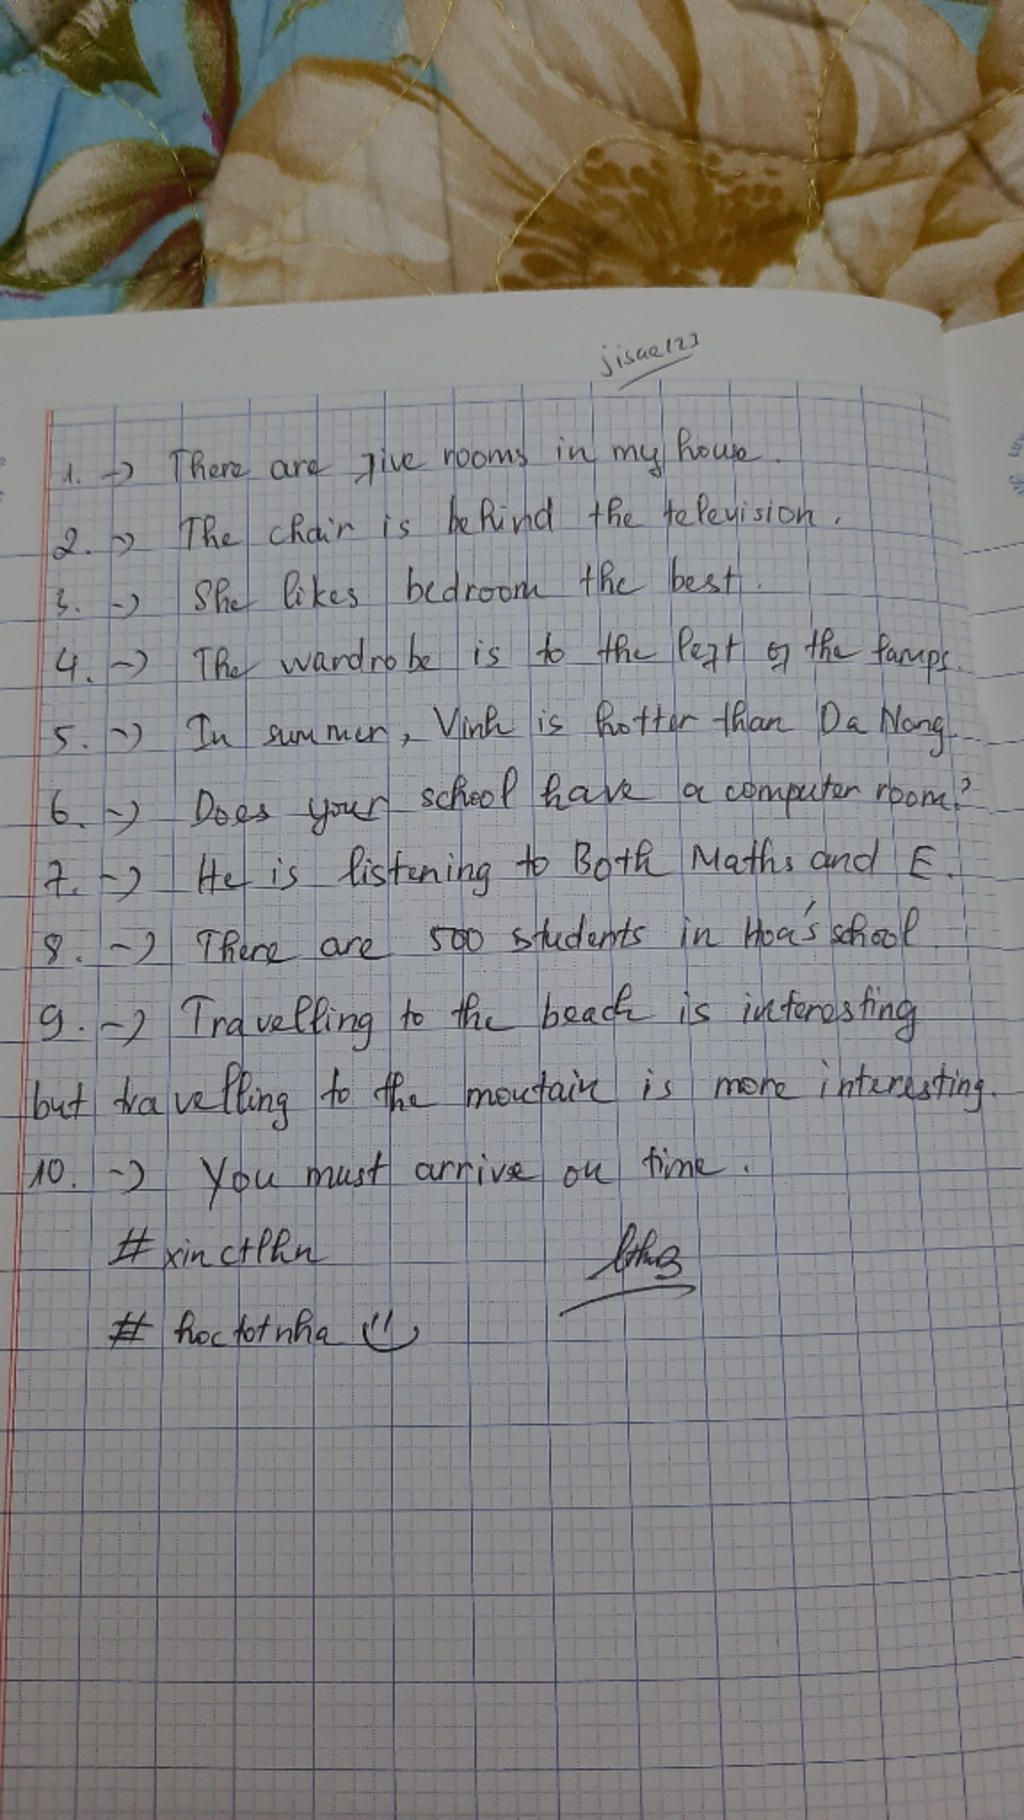 jisae123
1. -> There are five rooms in my house.
2. -> The chair is behind the television.
3. -> She likes bedroom the best.
4. -> The wardrobe is to the left of the lamps.
5. -> In summer, Vinh is hotter than Da Nang
6. -> Does your school have a computer room?
7. -> He is listening to Both Maths and E.
8. -> There are 500 students in Hoa's school
9. -> Travelling to the beach is interesting
but travelling to the moutain is more interesting.
10. -> You must arrive on time.
# xinctlhn
# hoctotnha